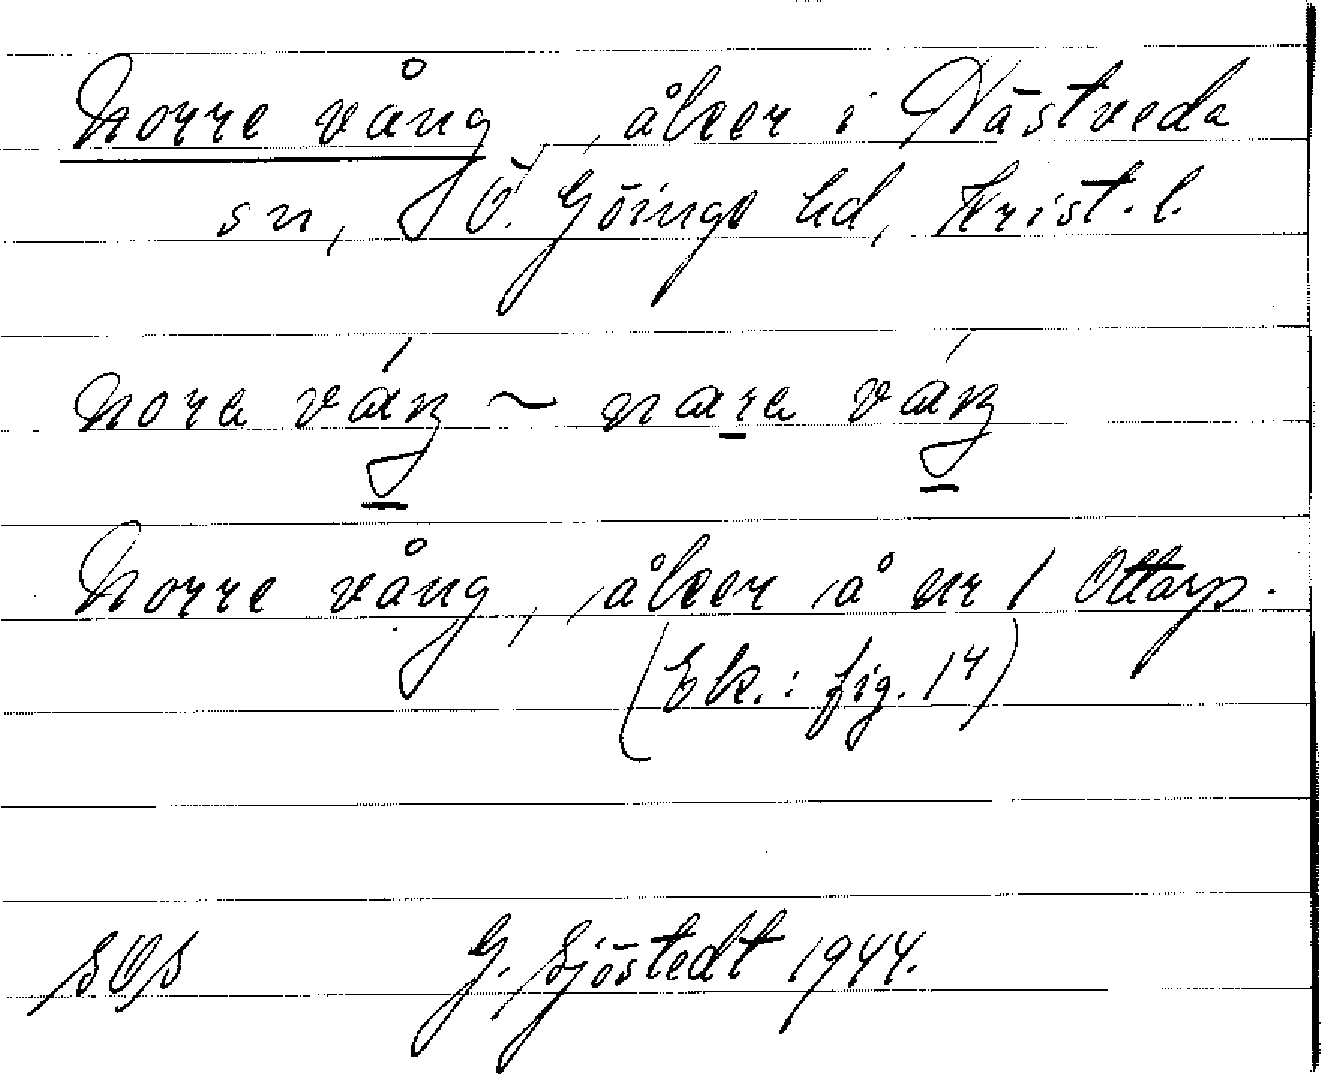 Norre vång, åker i Nästveda
sn, Ö. Göinge hd, Krist. l.
nora váŋ ~ nara váŋ
Norre vång, åker å nr 1 Ottarp.
(Ek.: fig. 14)
SOS G. Sjöstedt 1944.